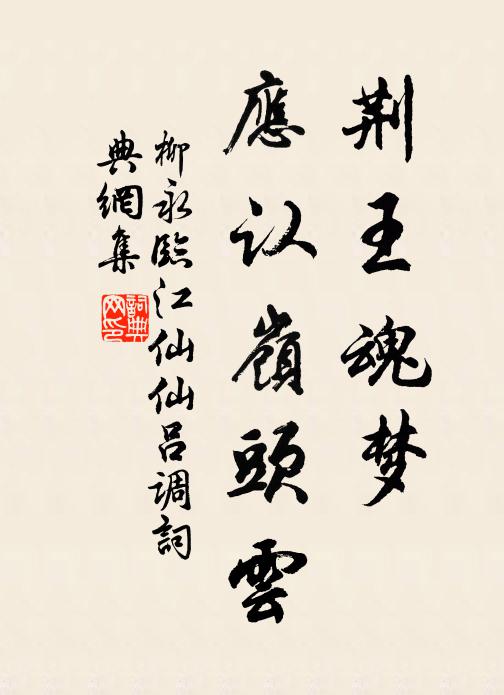 荆王魂梦
應认嶺頭雲
柳永臨江仙仙吕调詞
典網集
詞典网印